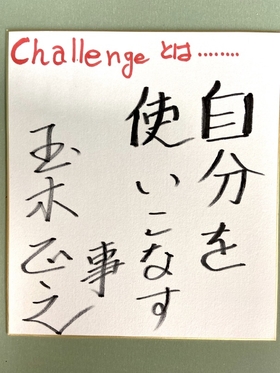 Challengeとは........
自分を
使いこなす
事
玉木正之